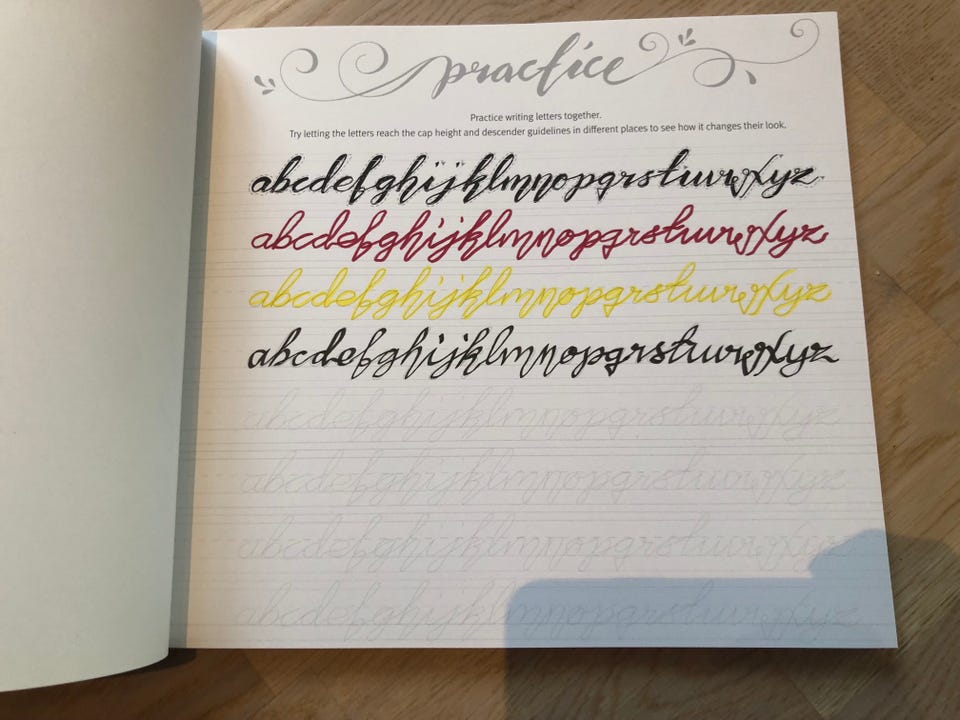 practice
Practice writing letters together.
Try letting the letters reach the cap height and descender guidelines in different places to see how it changes their look.
abcdefghijklmnopqrstuvwxyz
abcdefghijklmnopqrstuvwxyz
abcdefghijklmnopqrstuvwxyz
abcdefghijklmnopqrstuvwxyz
abcdefghijklmnopqrstuvwxyz
abcdefghijklmnopqrstuvwxyz
abcdefghijklmnopqrstuvwxyz
abcdefghijklmnopqrstuvwxyz